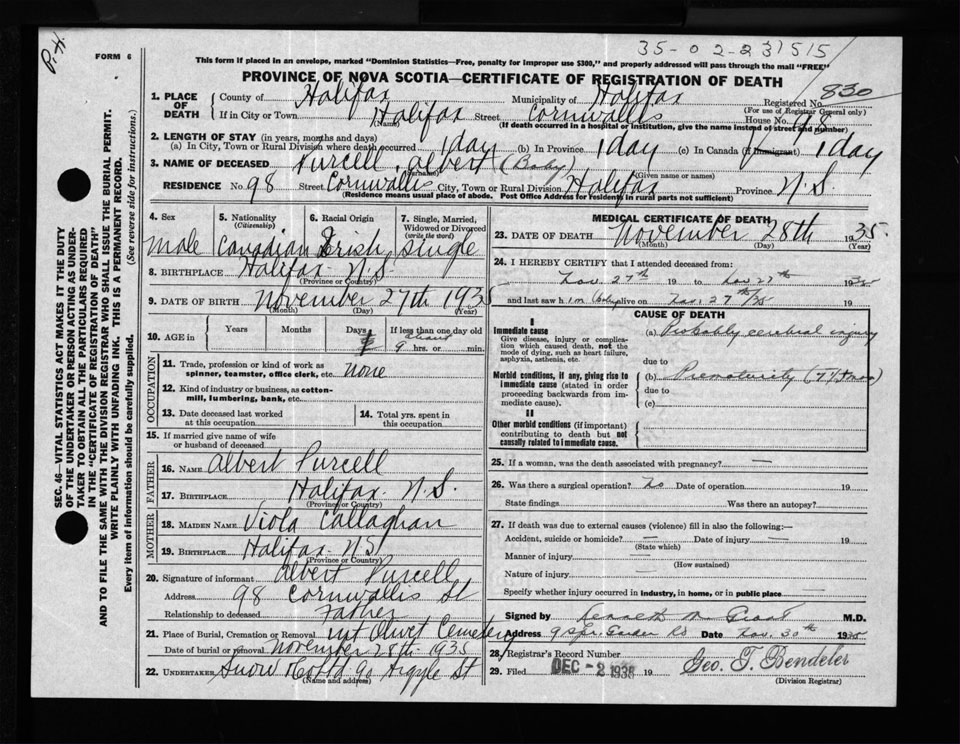 35-02-231515
P.H.
FORM 6
This form if placed in an envelope, marked "Dominion Statistics—Free, penalty for improper use $300," and properly addressed will pass through the mail "FREE"
PROVINCE OF NOVA SCOTIA—CERTIFICATE OF REGISTRATION OF DEATH
SEC. 46—VITAL STATISTICS ACT MAKES IT THE DUTY
OF THE UNDERTAKER OR PERSON ACTING AS UNDER-
TAKER TO OBTAIN ALL THE PARTICULARS REQUIRED
IN THE "CERTIFICATE OF REGISTRATION OF DEATH"
AND TO FILE THE SAME WITH THE DIVISION REGISTRAR WHO SHALL ISSUE THE BURIAL PERMIT.
WRITE PLAINLY WITH UNFADING INK. THIS IS A PERMANENT RECORD.
Every item of information should be carefully supplied. (See reverse side for instructions.)
1. PLACE OF DEATH County of Halifax Municipality of Halifax Registered No. 830
(For use of Registrar General only)
If in City or Town Halifax Street Cornwallis House No. 98
(Name) (If death occurred in a hospital or institution, give the name instead of street and number)
2. LENGTH OF STAY (in years, months and days)
(a) In City, Town or Rural Division where death occurred 1 day (b) In Province 1 day (c) In Canada (if immigrant) 1 day
3. NAME OF DECEASED Purcell Albert (Baby)
(Surname) (Given name or names)
RESIDENCE No. 98 Street Cornwallis City, Town or Rural Division Halifax Province N.S.
(Residence means usual place of abode. Post Office Address for residents in rural parts not sufficient)
4. Sex 5. Nationality (Citizenship) 6. Racial Origin 7. Single, Married, Widowed or Divorced (write the word)
Male Canadian Irish Single
8. BIRTHPLACE Halifax N.S.
(Province or Country)
9. DATE OF BIRTH November 27th 1935
(Month) (Day) (Year)
10. AGE in Years Months Days If less than one day old
about 9 hrs. or min.
OCCUPATION
11. Trade, profession or kind of work as spinner, teamster, office clerk, etc. none
12. Kind of industry or business, as cotton-mill, lumbering, bank, etc.
13. Date deceased last worked at this occupation
14. Total yrs. spent in this occupation
15. If married give name of wife or husband of deceased
FATHER
16. NAME Albert Purcell
17. BIRTHPLACE Halifax N.S.
(Province or Country)
MOTHER
18. MAIDEN NAME Viola Callaghan
19. BIRTHPLACE Halifax N.S.
(Province or Country)
20. Signature of informant Albert Purcell
Address 98 Cornwallis St
Relationship to deceased Father
21. Place of Burial, Cremation or Removal Mt Olivet Cemetery
Date of burial or removal November 28th 1935
22. UNDERTAKER Snow & Co Ltd 90 Argyle St
(Name and address)
MEDICAL CERTIFICATE OF DEATH
23. DATE OF DEATH November 28th 1935
(Month) (Day) (Year)
24. I HEREBY CERTIFY that I attended deceased from:
Nov. 27th 19 to Nov 27th 1935
and last saw him alive on Nov. 27th/35 19
CAUSE OF DEATH
I
Immediate cause
Give disease, injury or complication which caused death, not the mode of dying, such as heart failure, asphyxia, asthenia, etc.
(a) Probably cerebral injury
due to
Morbid conditions, if any, giving rise to immediate cause (stated in order proceeding backwards from immediate cause).
(b) Prematurity (7½ mos)
due to
(c)
II
Other morbid conditions (if important) contributing to death but not causally related to immediate cause.
25. If a woman, was the death associated with pregnancy? —
26. Was there a surgical operation? No Date of operation 19
State findings Was there an autopsy?
27. If death was due to external causes (violence) fill in also the following:—
Accident, suicide or homicide? — Date of injury — 19
(State which)
Manner of injury —
(How sustained)
Nature of injury —
Specify whether injury occurred in industry, in home, or in public place —
Signed by Kenneth M Grant M.D.
Address 9 Spr. Garden Rd Date Nov. 30th 1935
28. Registrar's Record Number
29. Filed DEC -2 1935 19 Geo. T. Bendeler
(Division Registrar)